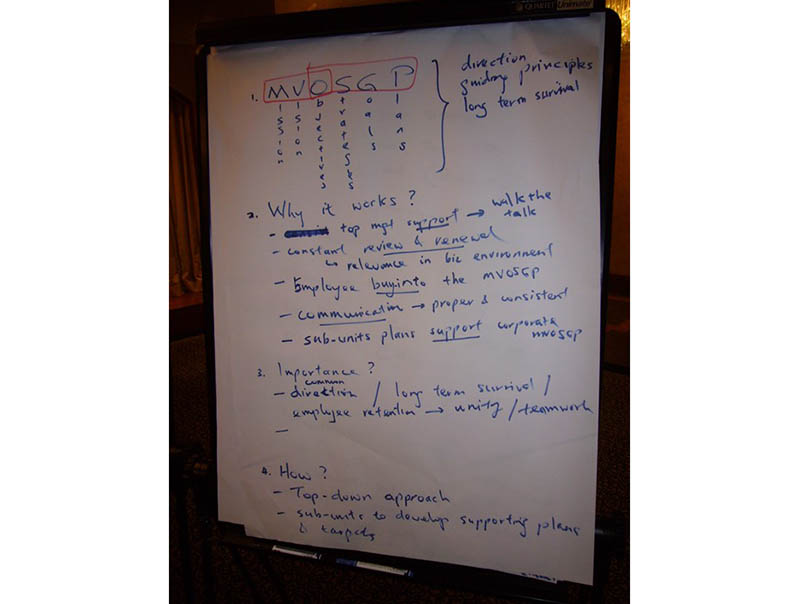 QUARTET Unimate
1. M V O S G P
Mission
Vision
Objectives
Strategies
Goals
Plans
direction
guiding principles
long term survival
2. Why it works?
- top mgt support → walk the talk
- constant review & renewal
↳ relevance in biz environment
- Employee buyinto the MVOSGP
- communication → proper & consistent
- sub-units plans support corporate MVOSGP
3. Importance?
common
- direction / long term survival /
employee retention → unity / teamwork
-
4. How?
- Top-down approach
- sub-units to develop supporting plans
& targets